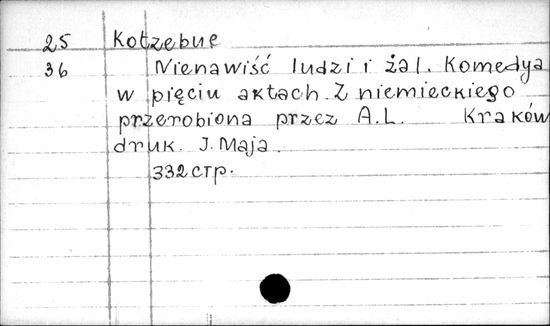 25 Kotzebue
36 Nienawiść ludzi i żal. Komedya
w pięciu aktach. Z niemieckiego
przerobiona przez A.L. Kraków
druk. J. Maja.
332 стр.